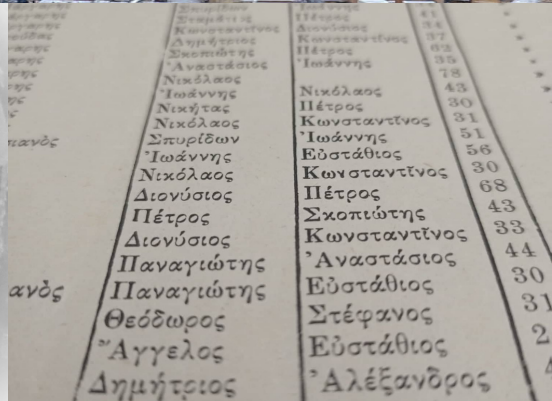 Σπυρίδων Ἰωάννης
Σταμάτιος Πέτρος 41
Κωνσταντῖνος Διονύσιος 34
Δημήτριος Κωνσταντῖνος 37
Σκοπιώτης Πέτρος 62
Ἀναστάσιος Ἰωάννης 35
Νικόλαος 78
Ἰωάννης Νικόλαος 43
Νικήτας Πέτρος 30
Νικόλαος Κωνσταντῖνος 31
Σπυρίδων Ἰωάννης 51
Ἰωάννης Εὐστάθιος 56
Νικόλαος Κωνσταντῖνος 30
Διονύσιος Πέτρος 68
Πέτρος Σκοπιώτης 43
Διονύσιος Κωνσταντῖνος 33
Παναγιώτης Ἀναστάσιος 44
ανὸς Παναγιώτης Εὐστάθιος 30
Θεόδωρος Στέφανος 31
Ἄγγελος Εὐστάθιος
Δημήτριος Ἀλέξανδρος